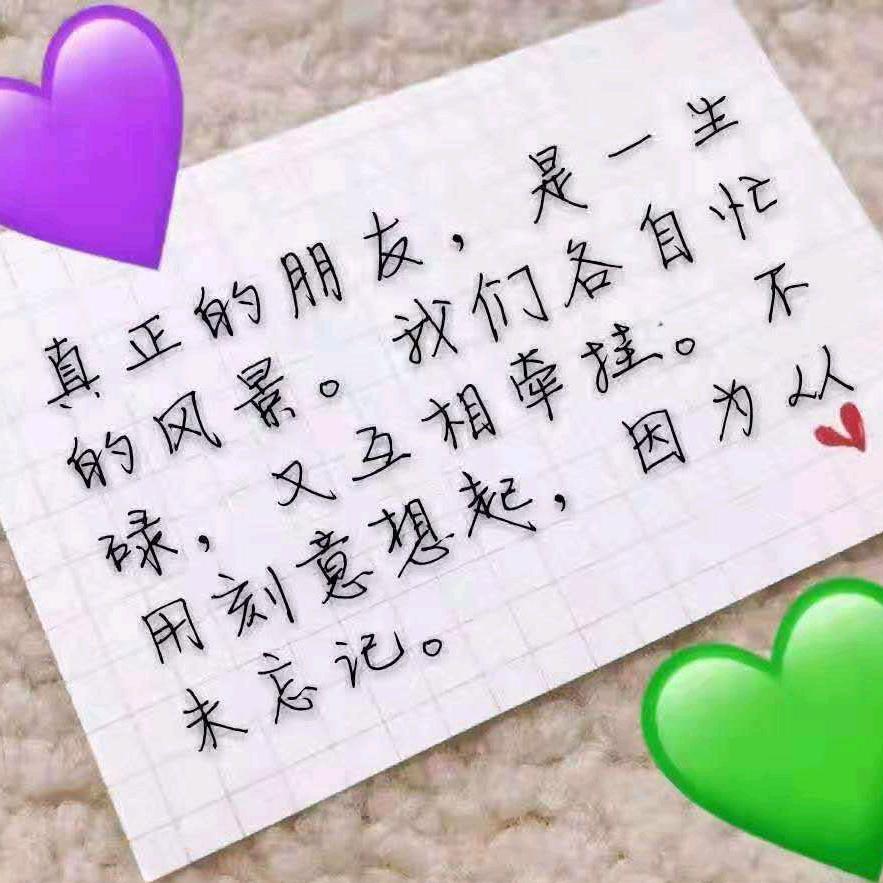 真正的朋友，是一生
的风景。我们各自忙
碌，又互相牵挂。不
用刻意想起，因为从
未忘记。